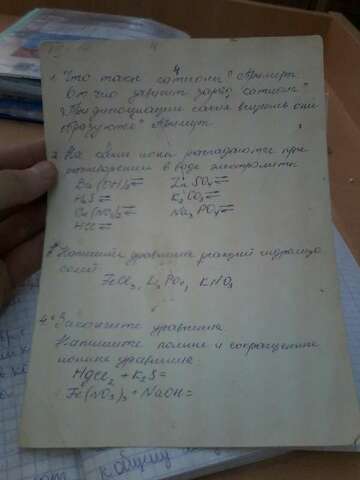 4
1. Что такое катионы? Пример.
От чего зависит заряд катиона?
При диссоциации каких веществ они
образуются? Пример.
2. На какие ионы распадаются при
растворении в воде электролиты
Ba(OH)₂ ⇄ ZnSO₄ ⇄
H₂S ⇄ K₂CO₃ ⇄
Cu(NO₃)₂ ⇄ Na₃PO₄ ⇄
HCl ⇄
3. Напишите уравнения реакций гидролиза
солей
FeCl₃, Li₃PO₄, KNO₃
4. Закончите уравнения.
Напишите полные и сокращенные
ионные уравнения:
HgCl₂ + K₂S =
Fe(NO₃)₃ + NaOH =
к общему